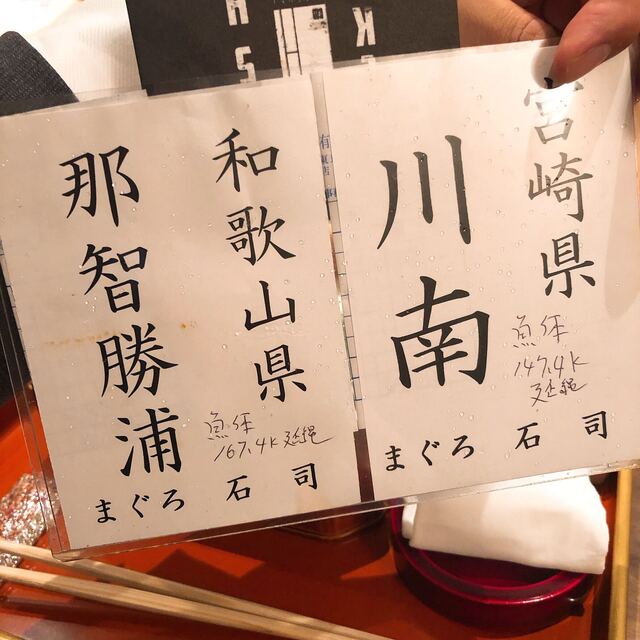 宮崎県
川南
魚体
147.4K
延縄
まぐろ 石司
和歌山県
那智勝浦
魚体
167.4K 延縄
まぐろ 石司